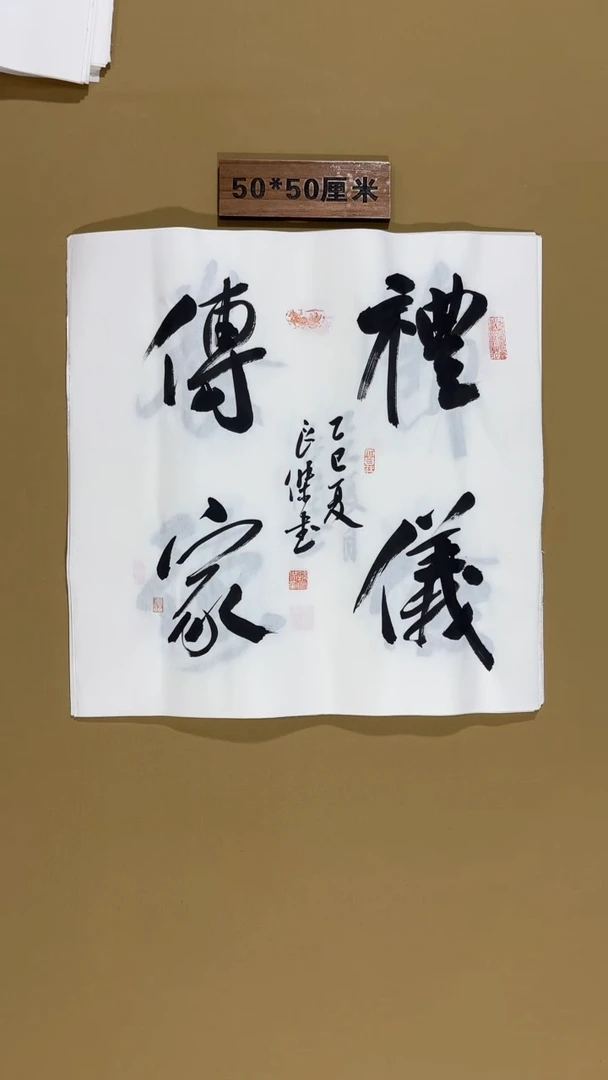 50*50厘米
禮儀
傳家
乙巳夏
良傑書